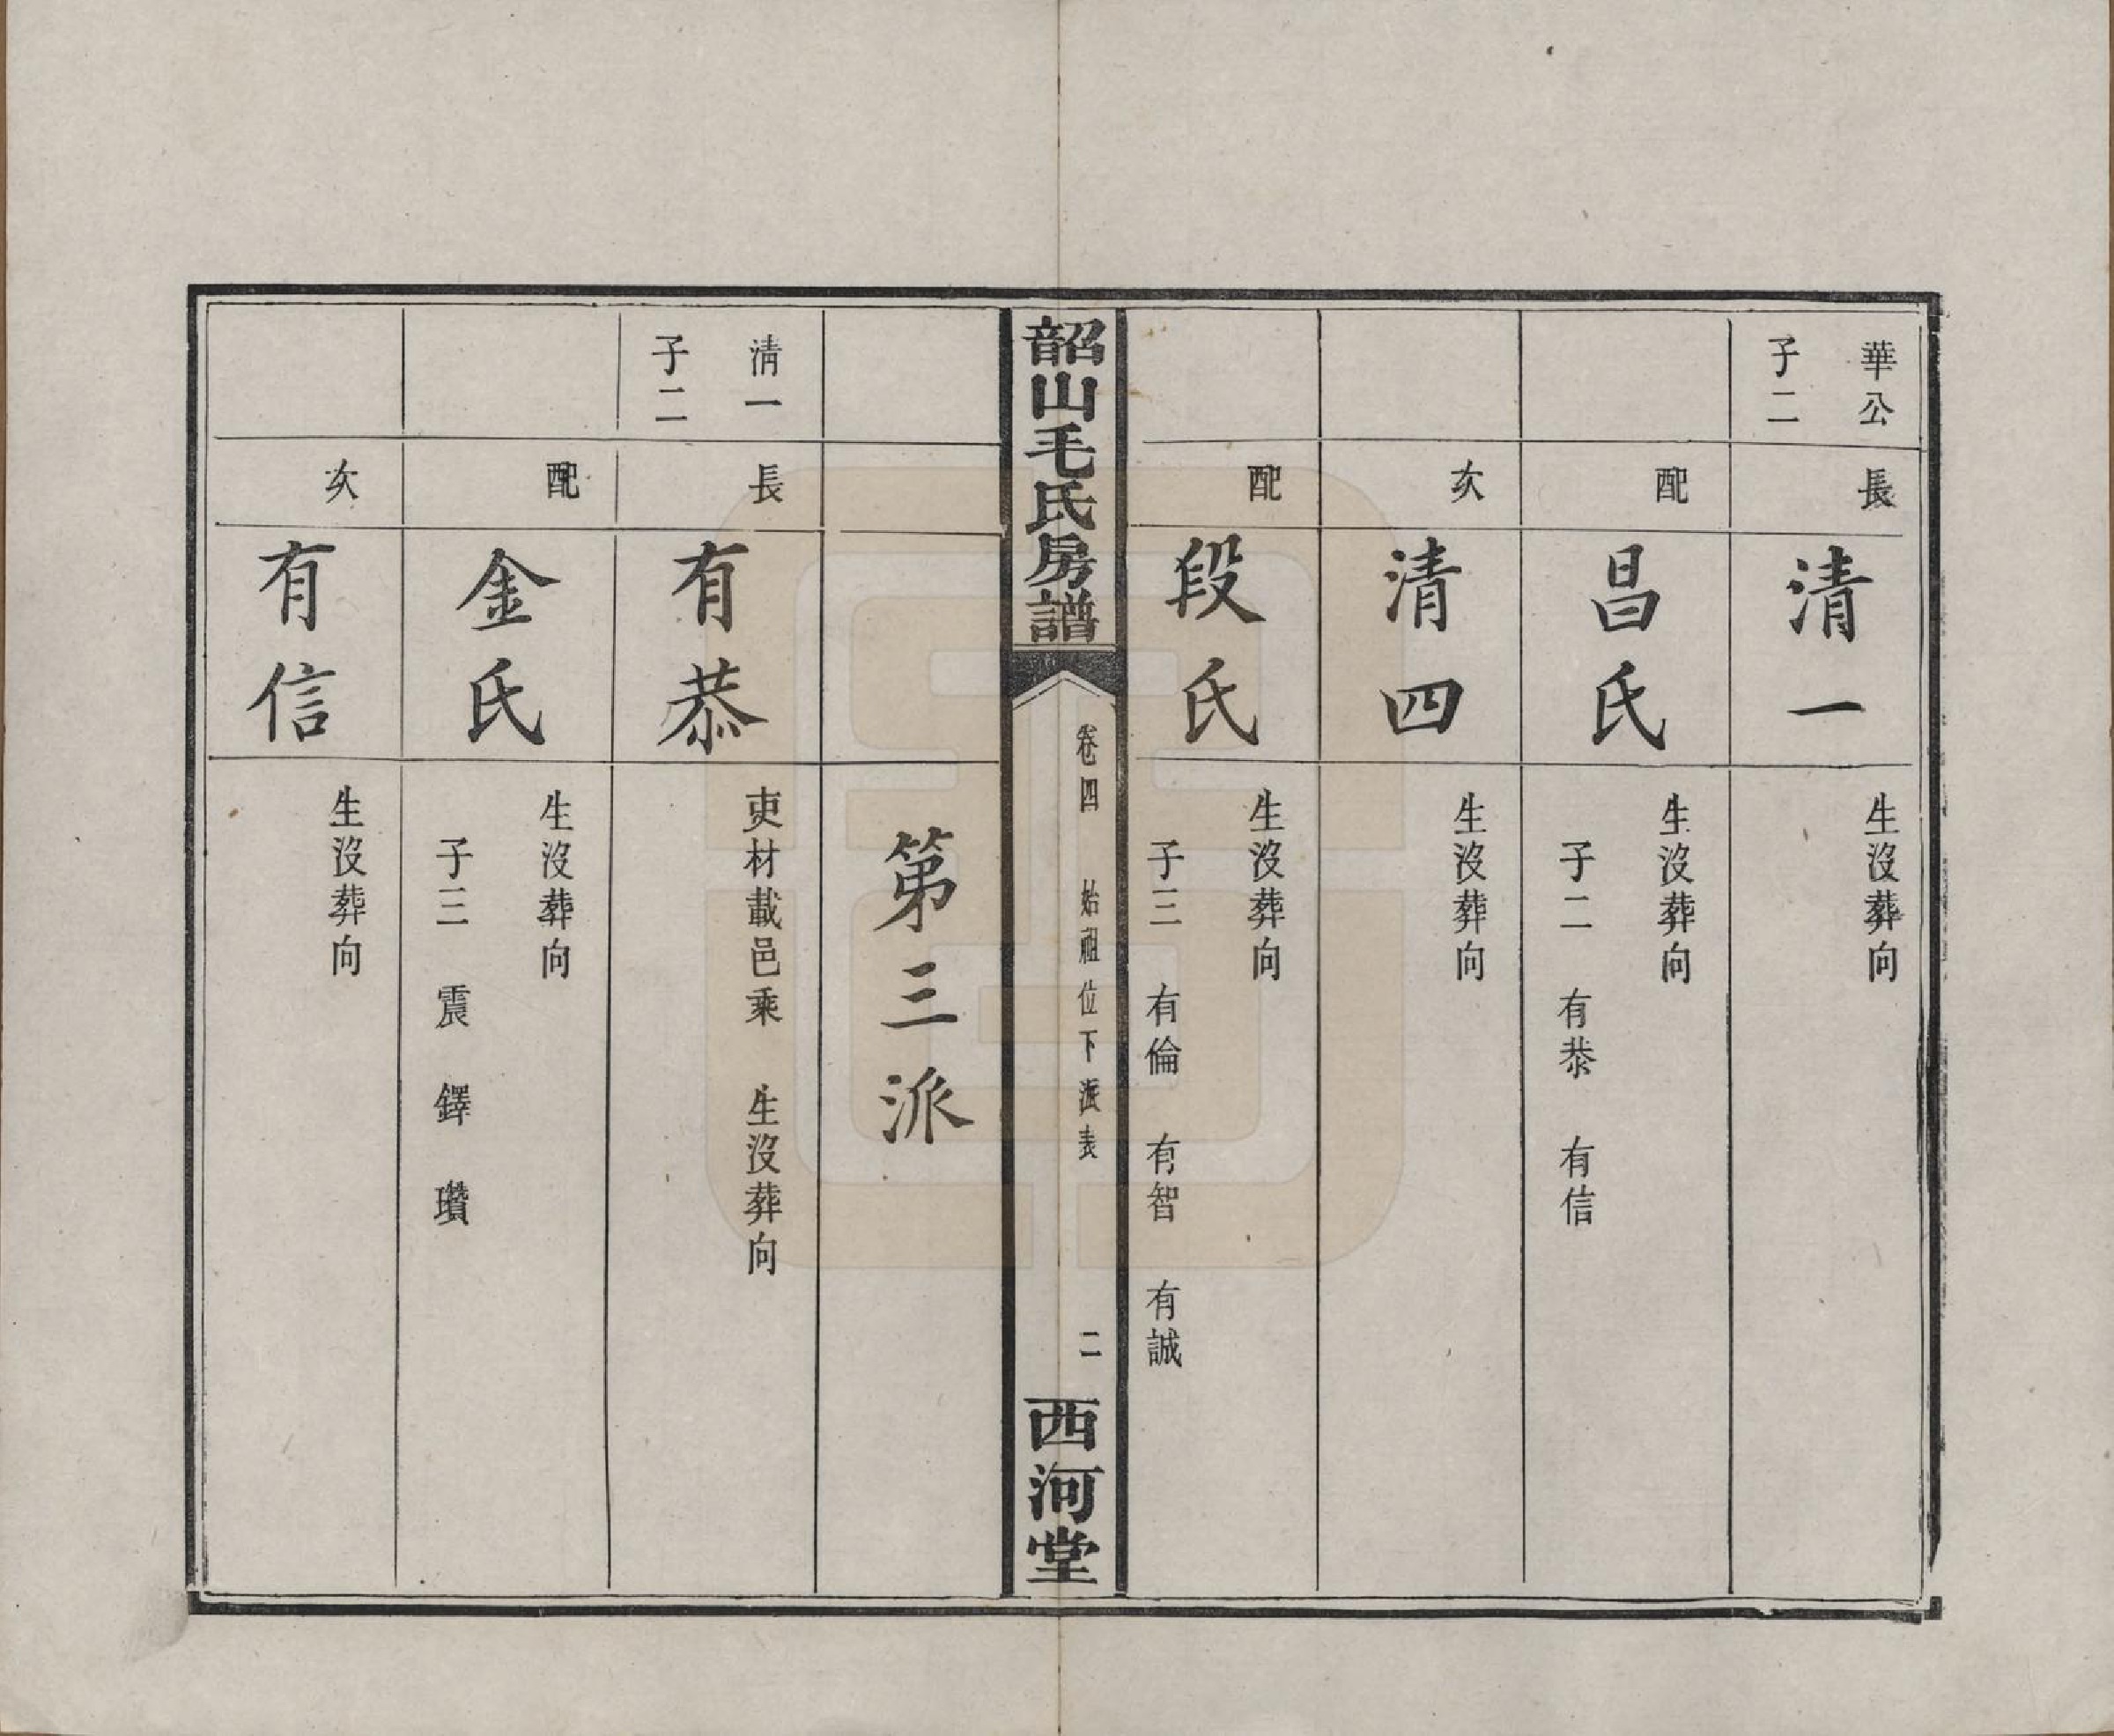 華公
子二
長
清一
生沒葬向
配
昌氏
生沒葬向
子二　有恭　有信
次
清四
生沒葬向
配
段氏
生沒葬向
子三　有倫　有智　有誠
韶山毛氏房譜
卷四　始祖位下派表
二
西河堂
第三派
清一
子二
長
有恭
吏材載邑乘　生沒葬向
配
金氏
生沒葬向
子三　震　鐸　瓚
次
有信
生沒葬向